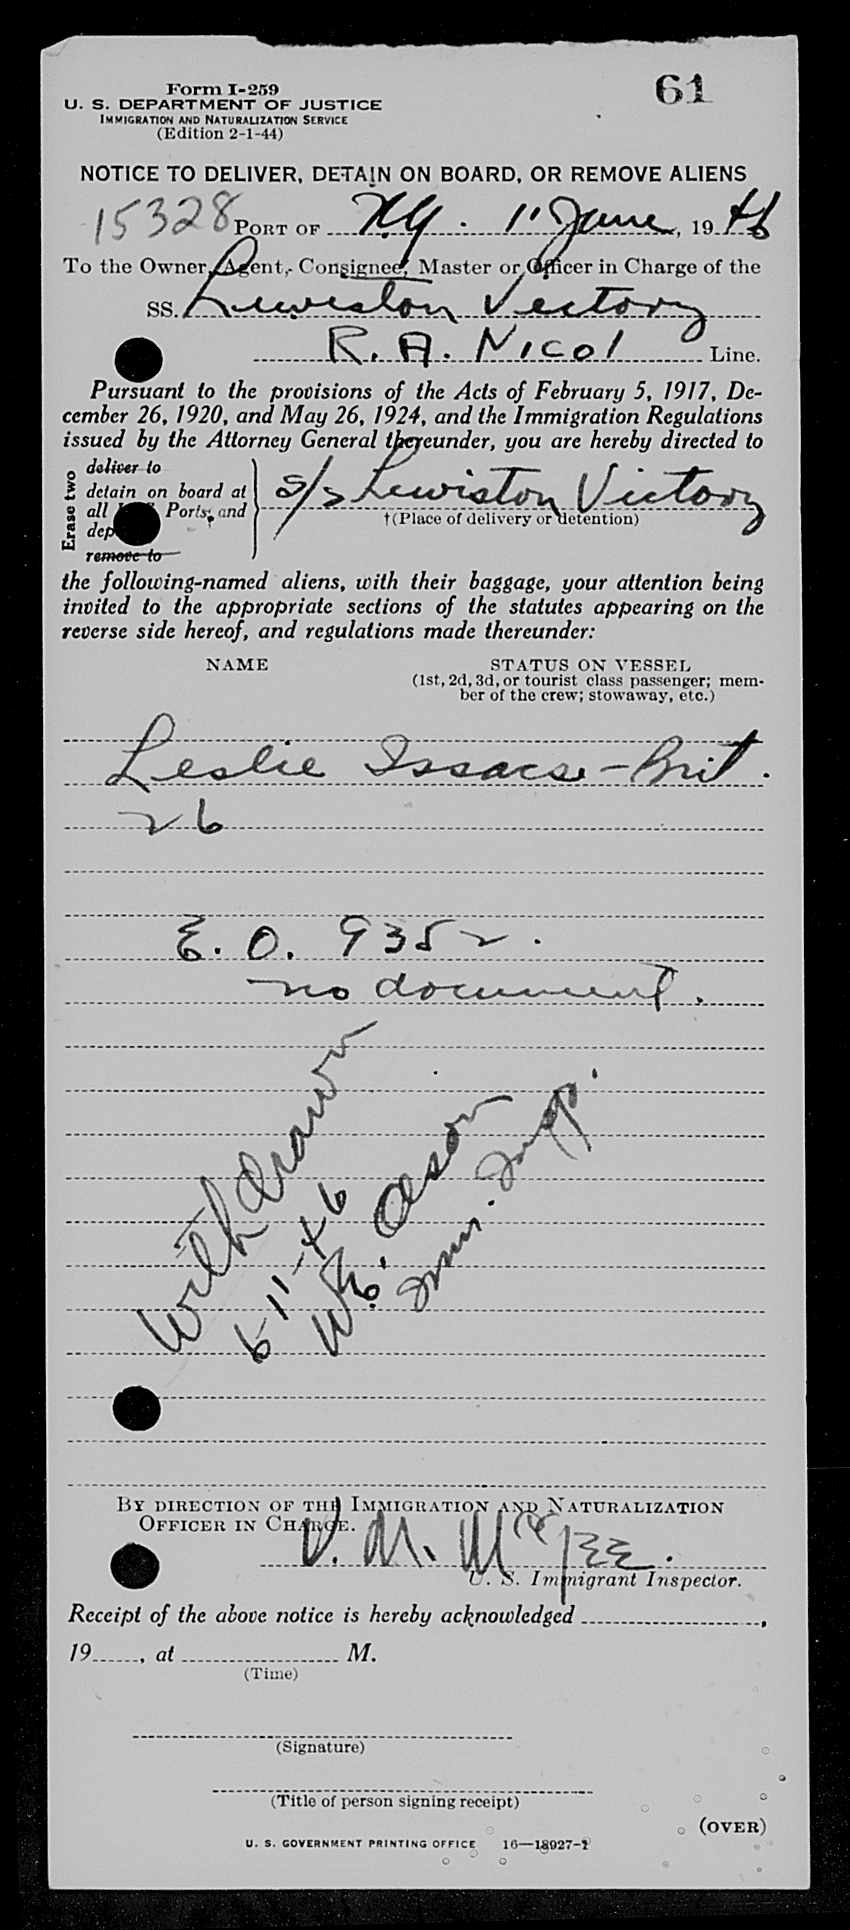 Form I-259
61
U. S. DEPARTMENT OF JUSTICE
IMMIGRATION AND NATURALIZATION SERVICE
(Edition 2-1-44)
NOTICE TO DELIVER, DETAIN ON BOARD, OR REMOVE ALIENS
15328 PORT OF N.Y. 11 June, 1946
To the Owner, Agent, Consignee, Master or Officer in Charge of the
SS. Lewiston Victory
R. A. Nicol Line.
Pursuant to the provisions of the Acts of February 5, 1917, De-
cember 26, 1920, and May 26, 1924, and the Immigration Regulations
issued by the Attorney General thereunder, you are hereby directed to
Erase two
deliver to
detain on board at
all Ports, and
dep
remove to
s/s Lewiston Victory
†(Place of delivery or detention)
the following-named aliens, with their baggage, your attention being
invited to the appropriate sections of the statutes appearing on the
reverse side hereof, and regulations made thereunder:
NAME STATUS ON VESSEL
(1st, 2d, 3d, or tourist class passenger; mem-
ber of the crew; stowaway, etc.)
Leslie Issacs - Brit.
26
E. O. 9352.
no document.
Withdrawn
6-11-46
W.E. Olson
Imm. Insp.
BY DIRECTION OF THE IMMIGRATION AND NATURALIZATION
OFFICER IN CHARGE.
V. M. McGee.
U. S. Immigrant Inspector.
Receipt of the above notice is hereby acknowledged ,
19 , at M.
(Time)
(Signature)
(Title of person signing receipt)
(OVER)
U. S. GOVERNMENT PRINTING OFFICE 16—18927-1